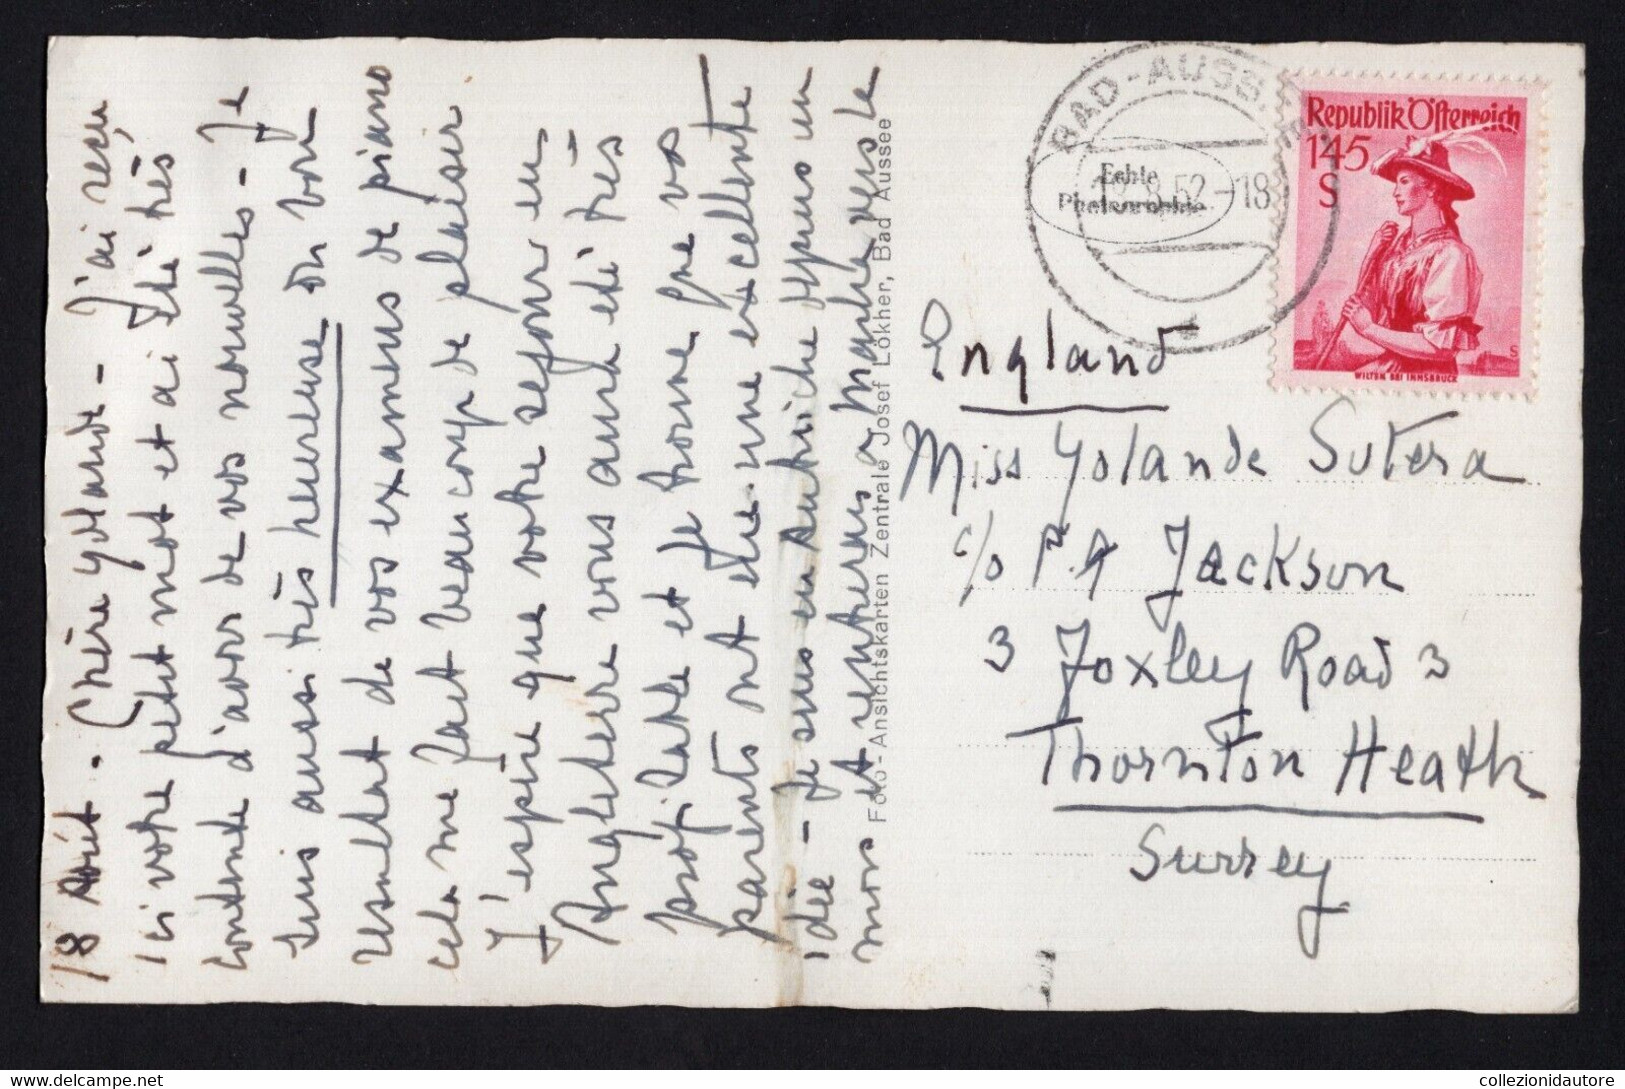 18 Août. Chère Yolande - J'ai reçu
ici votre petit mot et ai été très
contente d'avoir de vos nouvelles - Je
suis aussi très heureuse du bon
resultat de vos examens de piano
cela me fait beaucoup de plaisir
J'espère que votre sejour en
Angleterre vous aura été très
profitable et je trouve que vos
parents ont eu une excellente
idée - Je suis en Autriche depuis un
mois et rentrerai
Foto-Ansichtskarten Zentrale Josef Lokher, Bad Aussee
BAD-AUSSEE
8.52.-18
Echte
Photographie
Republik Österreich
1'45
S
WILTEN BEI INNSBRUCK
S
England
Miss Yolande Sutera
c/o P.A Jackson
3 Foxley Road 3
Thornton Heath
Surrey
collezionidautore.com